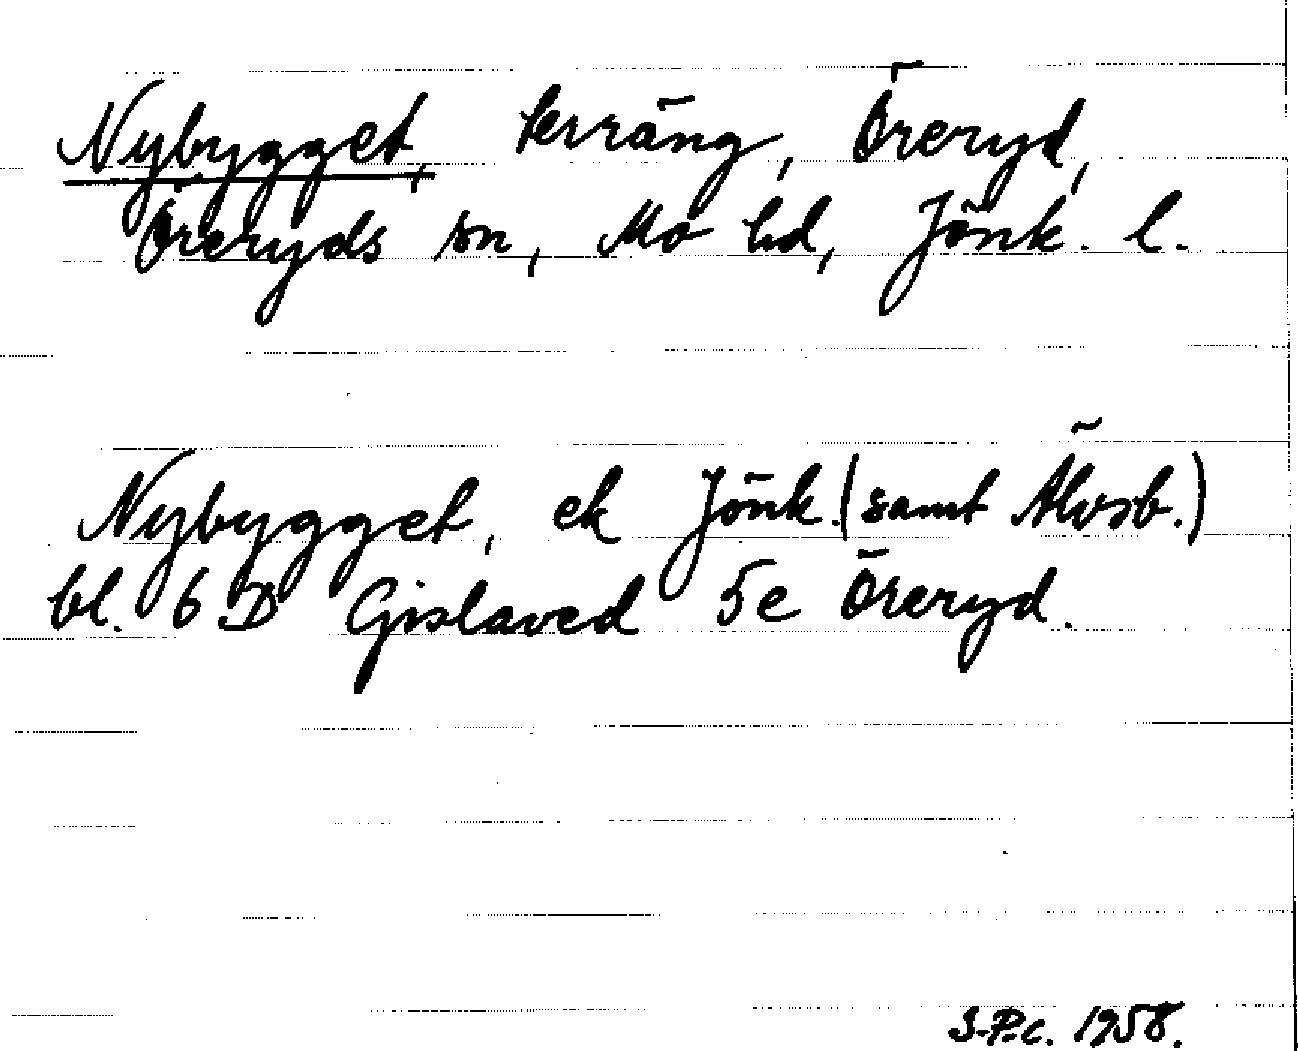 Nybygget, terräng, Öreryd,
Öreryds sn, Mo hd, Jönk. l.
Nybygget, ek Jönk. (samt Älvsb.)
bl. 6 D Gislaved 5e Öreryd.
S-P.c. 1958.